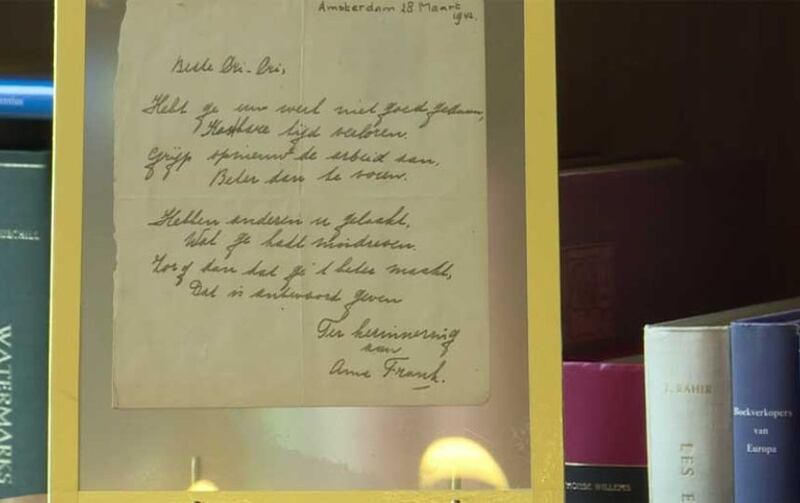 Amsterdam 28 Maart
1942.
Beste Cri-Cri,
Hebt ge uw werk niet goed gedaan,
Kostbare tijd verloren,
Grijp opnieuw de arbeid aan,
Beter dan te voren.
Hebben anderen u gelaakt,
Wat ge hadt misdreven,
Zorg dan dat ge 't beter maakt,
Dat is antwoord geven
Ter herinnering
aan
Anne Frank.
WATERMARKS
RAHIR
LES
Boekverkopers
van
Europa
WILLEMS